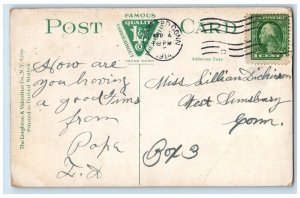 POST CARD
FAMOUS
QUALITY
1¢
TRADE MARK
CONN
12 PM
Address Only.
1 CENT 1
The Leighton & Valentine Co. N. Y. City.
Printed in United States.
How are
you having
a good time
from
Papa
Miss Lillian Dickinson
West Simsbury
Conn.
Box 3